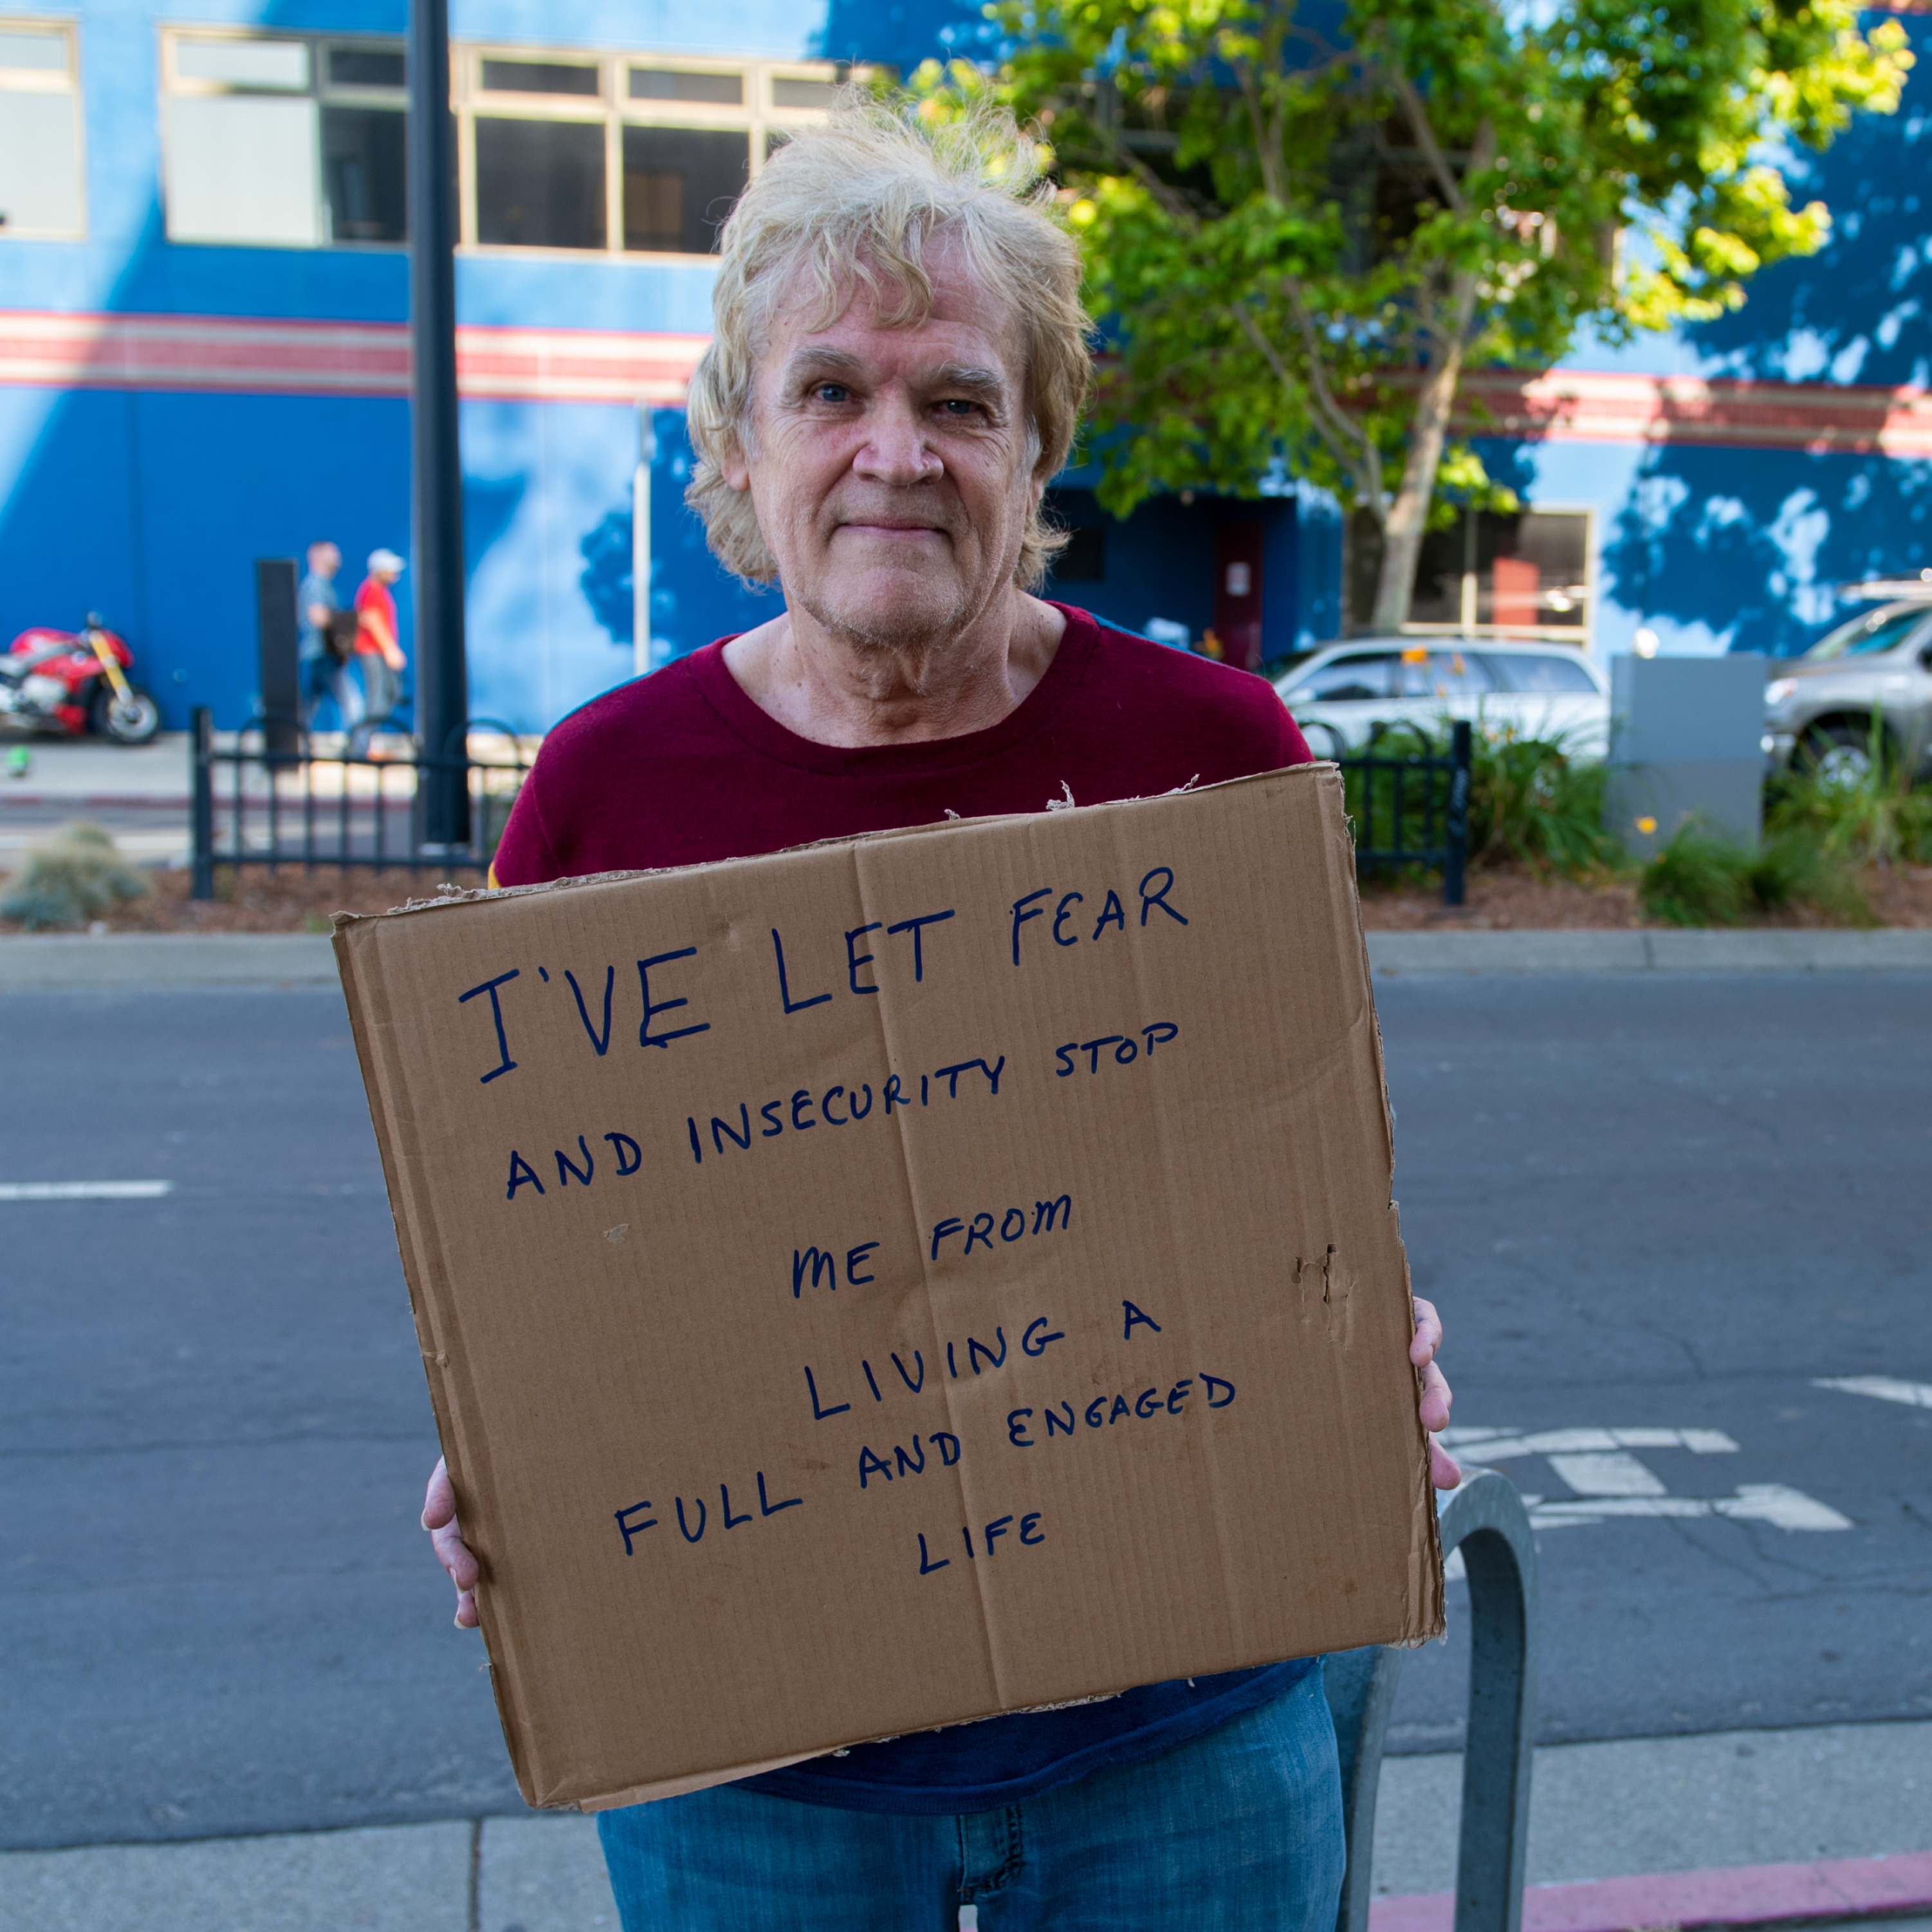 I'VE LET FEAR
AND INSECURITY STOP
ME FROM
LIVING A
FULL AND ENGAGED
LIFE